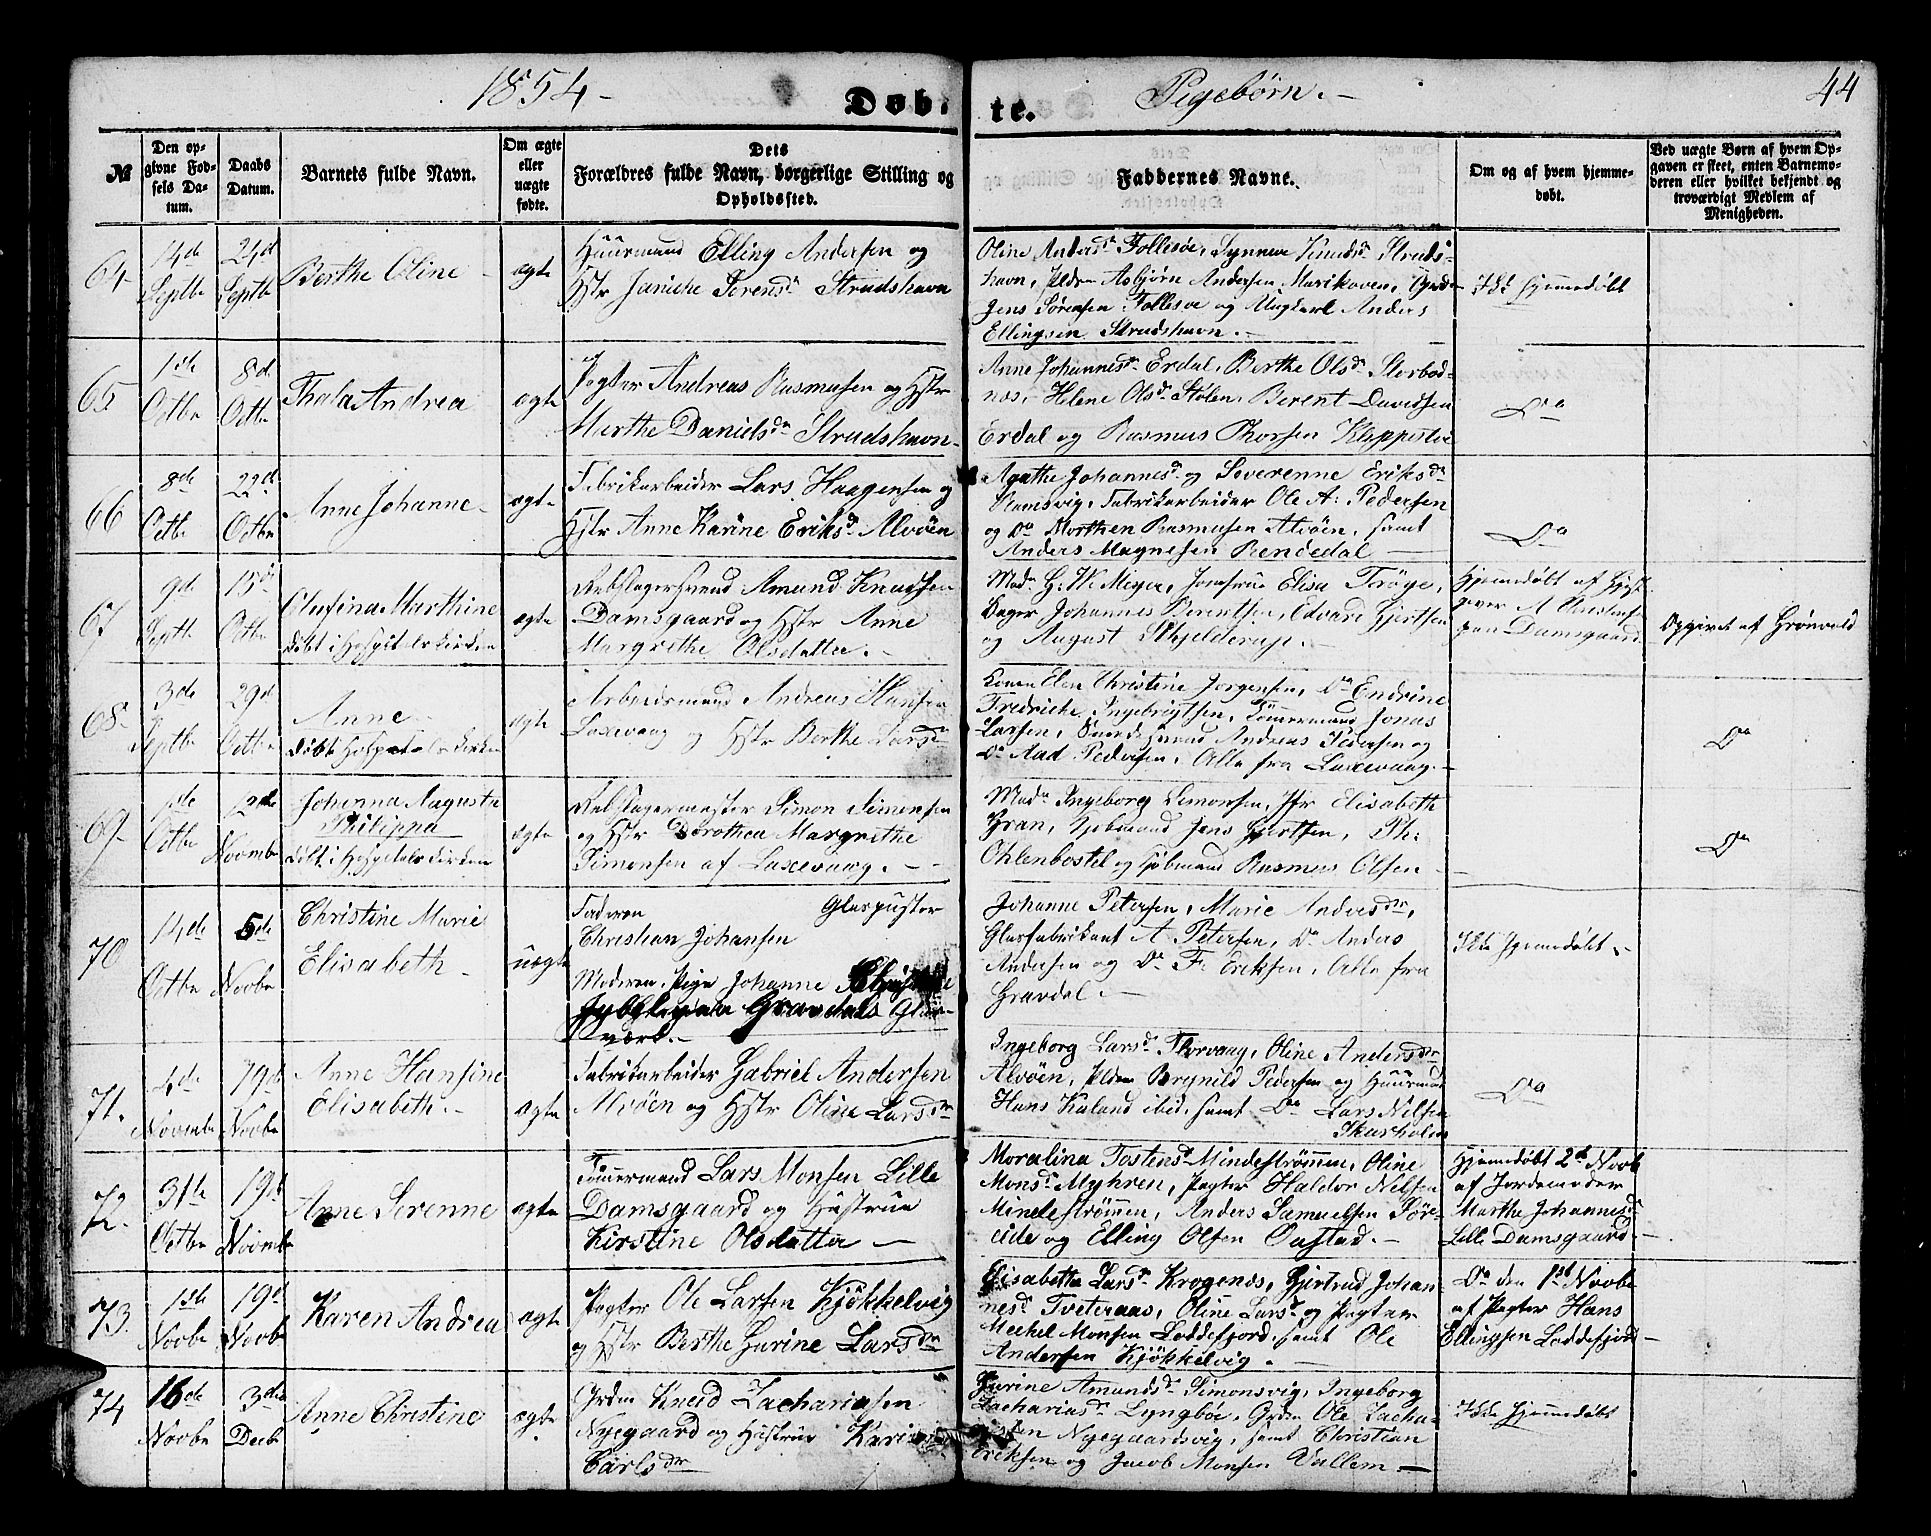 1854 -
Døb-
te.
Pigebørn. -
44
№
Den op-
givne Fød-
sels Da-
tum.
Daabs
Datum.
Barnets fulde Navn.
Om ægte
eller
uægte
fødte.
Dets
Forældres fulde Navn, borgerlige Stilling og
Opholdssted.
Faddernes Navne.
Om og af hvem hjemme-
døbt.
Ved uægte Børn af hvem Op-
gaven er skeet, enten Barnemo-
deren eller hvilket bekjendt og
troværdigt Medlem af
Menigheden.
64
14de
Septbr
24d
Septbr
Berthe Oline
ægte
Huusmand Elling Andersen og
Hstr Janiche Sørensd. Strudshavn
Oline Andersd. Follesøe, Synneve Knudsd. Struds-
havn, Asbjørn Andersen Marikoven,
Jens Sørensen Follesøe og Ungkarl Anders
Ellingsen Strudshavn. -
Ikke hjemmedøbt
65
1ste
Octbr
8d.
Octbr
Thala Andrea
ægte
Pagter Andreas Rasmusen og Hstr
Marthe Danielsdr Strudshavn -
Anne Johannesdr Erdal, Berthe Olsdr Storbod-
nes, Helene Olsdr Stølen, Berent Davidsen
Erdal og Rasmus Thorsen Kleppestø
Do
66
8de
Octbr
22d
Octbr
Anne Johanne -
ægte
Fabrikarbeider Lars Haagensen og
Hstr Anne Karine Eriksdr Alvøen
Agathe Johannesd. og Severenne Eriksdr
Ramsvig, Fabrikarbeider Ole A: Pedersen
og Do Morthen Rasmusen Alvøen, samt
Anders Magnesen Rendedal -
Do
67
9de
Septbr
15d
Octbr
Olufina Marthine
døbt i Hospitalskirken
ægte
Rebslagersvend Amund Knudsen
Damsgaard og Hstr Anne
Margrethe Olsdatter. -
Madm G: W. Meyer, Jomfrue Elisa Trøye,
Bager Johannes Berentsen, Edvard Gjertsen
og August Skjelderup. -
Hjemmedøbt af
Damsgaard
Opgivet af Grønvold
68
3de
Septbr
29d
Octbr
Anne
døbt Hospitalskirken
ægte
Arbeidsmand Andreas Hansen
Laxevaag og Hstr Berthe Larsdr
Konen Elen Christine Jorgensen, Do Endrine
Fredrikke Ingebrigtsen, Tømmermand Jonas
Larsen, Andreas Pedersen og
Do Aad Pedersen, Alle fra Laxevaag. -
Do
69
Octbr
12te
Novmbr
Johanna Augusta
Philippa
døbt i Hospitalskirken
ægte
Rebslagermester Simon Simonsen
og Hstr Dorothea Margrethe
Simonsen af Laxevaag. -
Madm Ingeborg Simonsen, Jfr Elisabeth
Gran, Kjøbmand Jens Gjertsen, Ph:
Ohlenbostel og Kjøbmand Rasmus Olsen -
Do
70
14de
Octbr
5te
Novbr
Christine Marie
Elisabeth -
uægte
Faderen Glaspuster
Christian Johansen
Moderen, Pige Johanne
Gravdals Glas-
værk. -
Johanne Petersen, Marie Andersdr,
Glasfabrikant A Petersen, Do Anders
Andersen og Do F: Eriksen, Alle fra
Gravdal. -
Ikke hjemmedøbt. -
71.
4de
Novmbr
19de
Novbr
Anne Hansine
Elisabeth. -
ægte
Fabrikarbeider Gabriel Andersen
Alvøen og Hstr Oline Larsdr
Ingeborg Larsdr Florvaag, Oline Andersdr
Alvøen, Brynild Pedersen og Huusmand
Hans Kaland ibid, samt Do Lars Nilsen
Skarholm
Do
72.
31te
Octbr
19d
Novmbr
Anne Serenne
ægte
Tømmermand Lars Monsen Lille
Damsgaard og Hustrue
Kirstine Olsdatter -
Moralina Tostensd. Mindestrømmen, Oline
Monsd. Myhren, Pagter Haldor Nilsen
Mindestrømmen, Anders Samuelsen Søre-
eide og Elling Olsen Oastad. -
Hjemmedøbt 2d Novbr
af Jordemoder
Marthe Johannesdr
Lille Damsgaard. -
73.
1ste
Novbr
19d
Novbr
Karen Andrea
ægte
Pagter Ole Larsen Kjøkkelvig
og Hstr Berthe Gurine Larsdr
Elisabethe Larsdr Krogenes, Gjertrud Johan-
nesd. Tveteraas, Oline Larsd. og Pagter
Mechel Monsen Loddefjord, samt Ole
Andersen Kjøkkelvig. -
Do den 1ste Novbr
af Pagter Hans
Ellingsen Loddefjord -
74
16de
Novbr
3die
Decbr
Anne Christine
ægte
Grdm Knud Zachariasen
Nyegaard og Hustrue Karine
Carlsdr
Gurine Amundsdr Simonsvig, Ingeborg
Zachariasd. Lyngbøe, Grdm Ole Zacha-
riasen Nyegaardsvig, samt Christian
Eriksen og Jacob Monsen Vallem -
Ikke hjemmedøbt